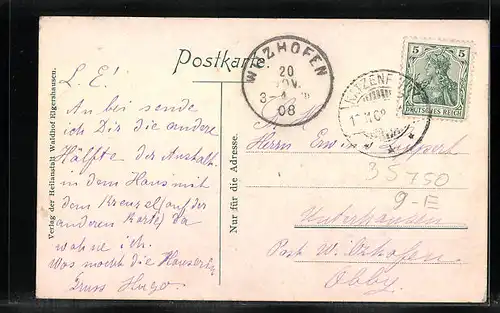 Verlag der Heilanstalt Waldhof Elgershausen.
Postkarte.
Nur für die Adresse.
L. E!
An bei sende
ich Dir die andere
Hälfte der Anstalt
in dem Haus mit
dem Kreuzel (auf der
anderen Karte) da
wohne ich.
Was macht die
Gruss Hugo.
WITZHOFEN
20
NOV.
08
5 5
DEUTSCHES REICH
Herrn Erwin
35750
9-E
Unterhausen
Post